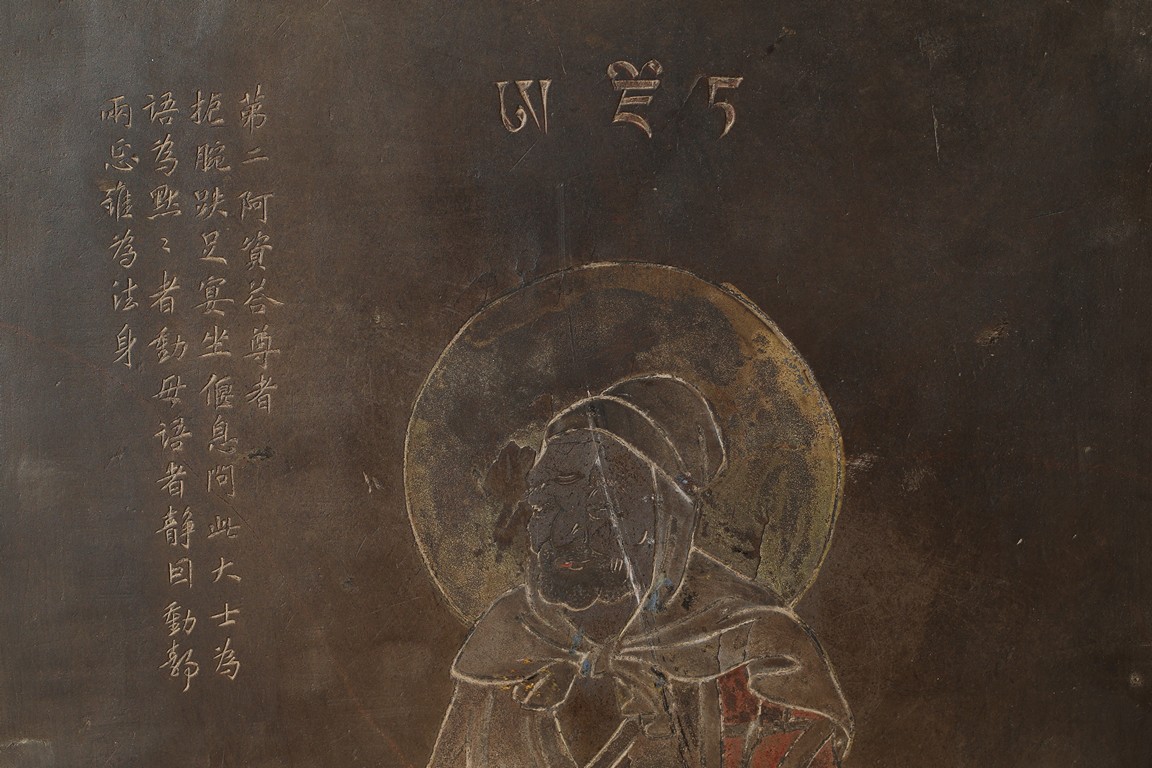 第二阿資荅尊者
扼腕趺足宴坐偃息問此大士為
語為默〻者動毋語者静回動靜
兩忘雖為法身